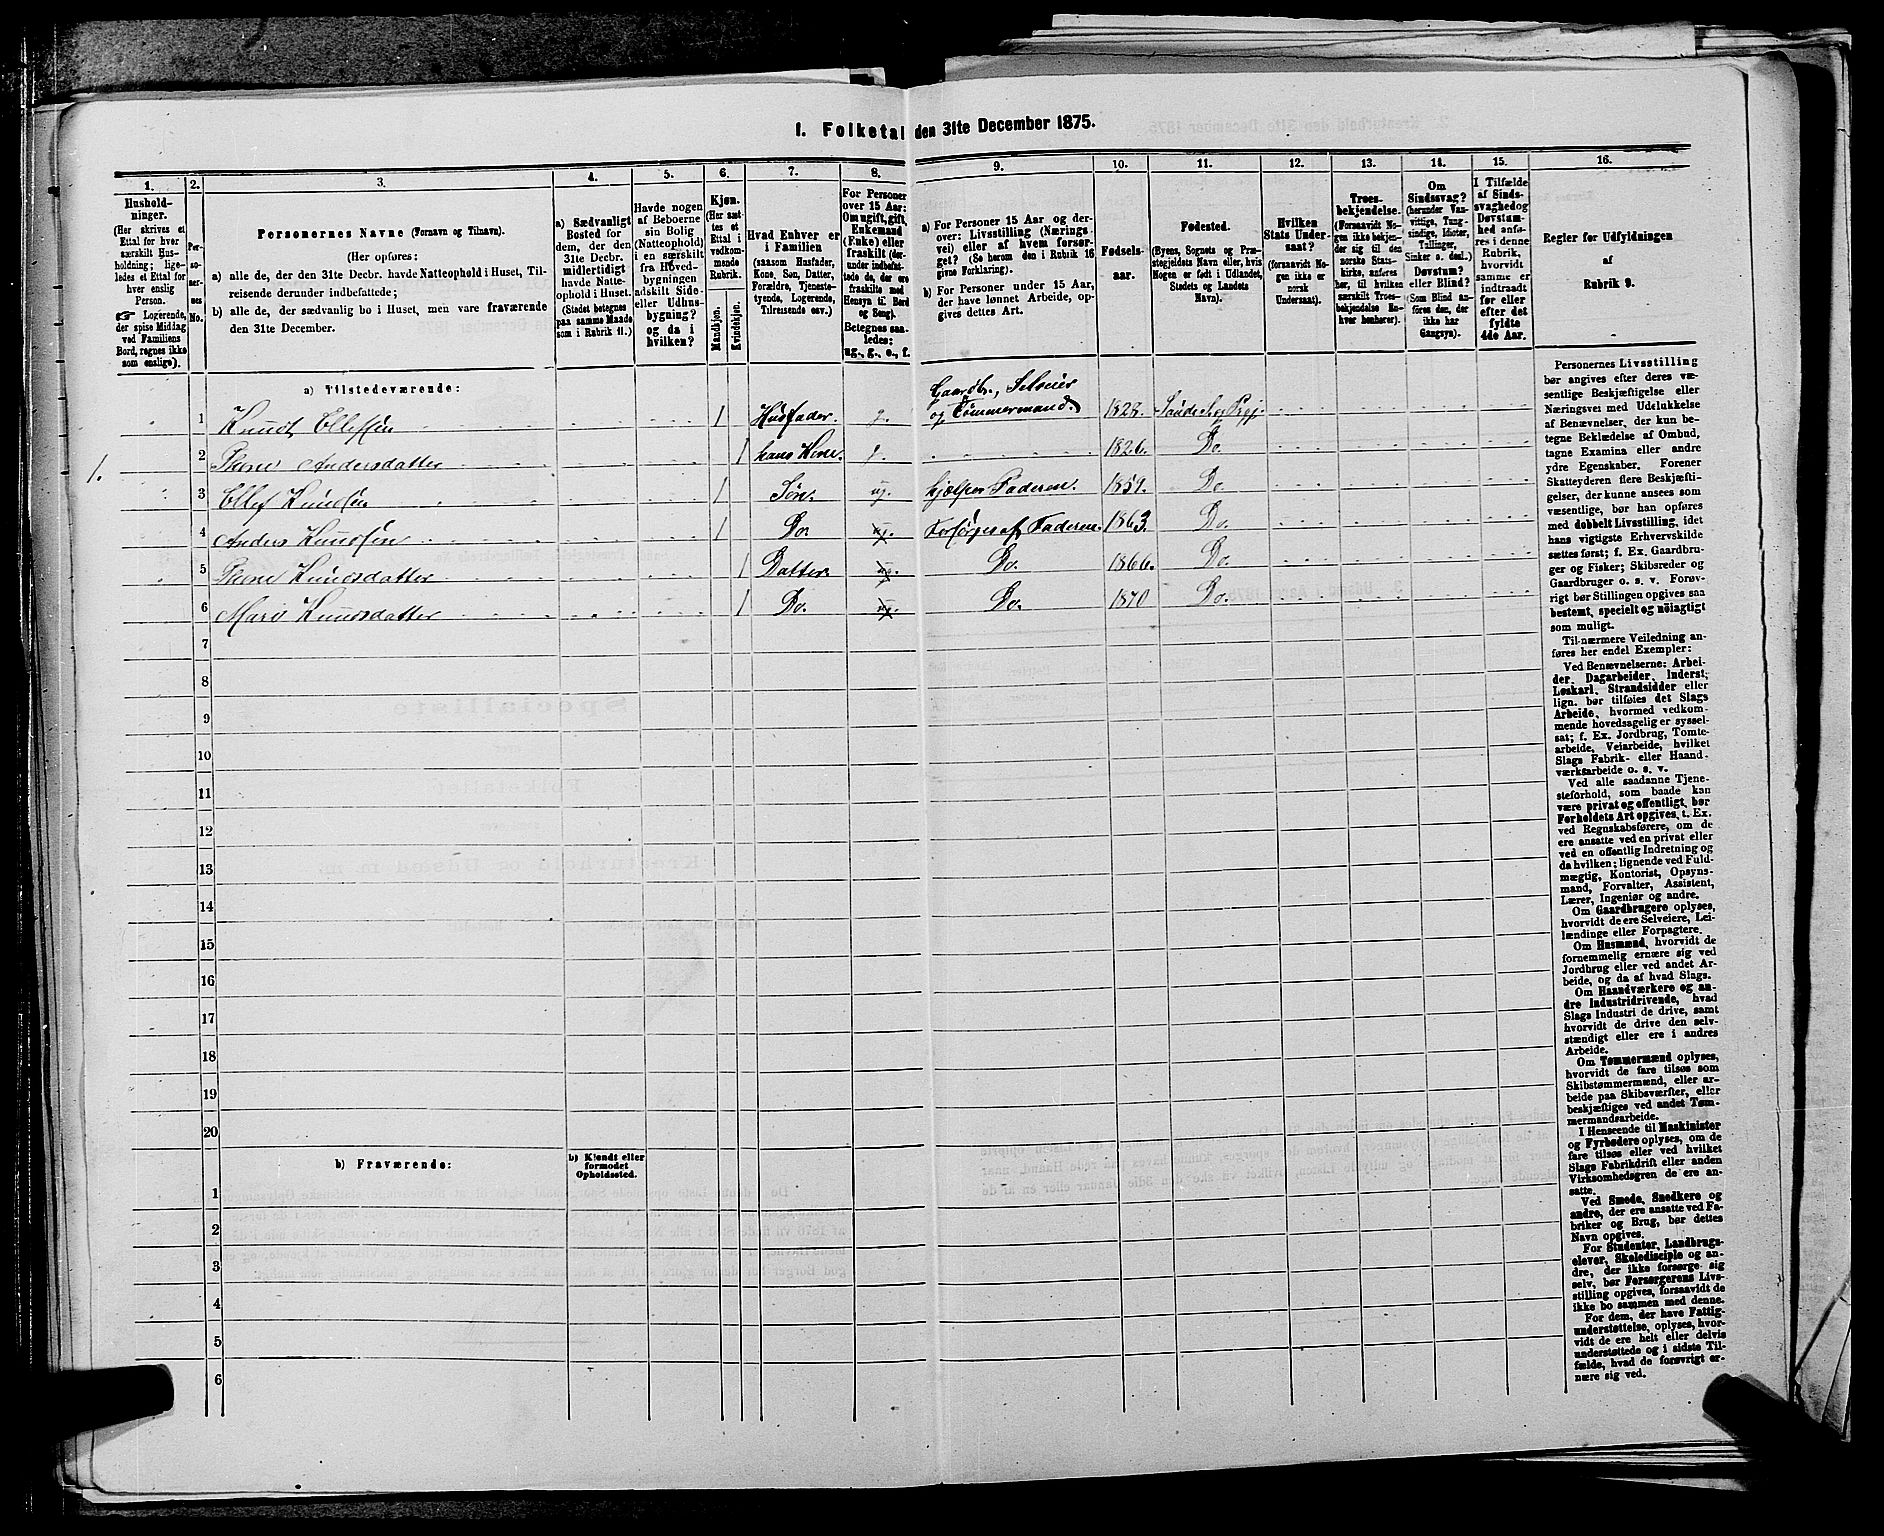 1. Folketal den 31te December 1875.
1.
Hushold-
ninger.
(Her skrives et
Ettal for hver
særskilt Hus-
holdning; lige-
ledes et Ettal for
hver enslig
Person.
☞ Logerende,
der spise Middag
ved Familiens
Bord, regnes ikke
som enslige).
2.
Per-
so-
ner-
nes
No.
3.
Personernes Navne (Fornavn og Tilnavn).
(Her opføres:
a) alle de, der den 31te Decbr. havde Natteophold i Huset, Til-
reisende derunder indbefattede;
b) alle de, der sædvanlig bo i Huset, men vare fraværende
den 31te December.
4.
a) Sædvanligt
Bosted for
dem, der den
31te Decbr.
midlertidigt
havde Natte-
ophold i Huset.
(Stedet betegnes
paa samme Maade
som i Rubrik 11.)
5.
Havde nogen
af Beboerne
sin Bolig
(Natteophold)
i en særskilt
fra Hoved-
bygningen
adskilt Side-
eller Udhus-
bygning?
og da i
hvilken?
6.
Kjøn.
(Her sæt-
tes et
Ettal i
vedkom-
mende
Rubrik.
Mandkjøn.
Kvindekjøn.
7.
Hvad Enhver er
i Familien
(saasom Husfader,
Kone, Søn, Datter,
Forældre, Tjeneste-
tyende, Logerende,
Tilreisende osv.)
8.
For Personer
over 15 Aar:
Om ugift, gift,
Enkemand
(Enke) eller
fraskilt (der-
under indbefat-
tede de, der ere
fraskilte med
Hensyn til Bord
og Seng).
Betegnes saa-
ledes:
ug., g., e., f.
9.
a) For Personer 15 Aar og der-
over: Livsstilling (Nærings-
vei) eller af hvem forsør-
get? (Se herom den i Rubrik 16
givne Forklaring).
b) For Personer under 15 Aar,
der have lønnet Arbeide, op-
gives dettes Art.
10.
Fødsels-
aar.
11.
Fødested.
(Byens, Sognets og Præ-
stegjeldets Navn eller, hvis
Nogen er født i Udlandet,
Stedets og Landets
Navn).
12.
Hvilken
Stats Under-
saat?
(forsaavidt No-
gen ikke er
norsk
Undersaat).
13.
Troes-
bekjendelse.
(Forsaavidt No-
gen ikke bekjen-
der sig til den
norske Stats-
kirke, anføres
her, til hvilken
særskilt Troes-
bekjendelse En-
hver henhører).
14.
Om
Sindssvag?
(herunder Van-
vittige, Tung-
sindige, Idioter,
Tullinger,
Sinker o. desl.)
Døvstum?
eller Blind?
(Som Blind an-
føres den, der
ikke har
Gangsyn).
15.
I Tilfælde
af Sinds-
svaghed og
Døvstum-
hed anfø-
res i denne
Rubrik,
hvorvidt
samme er
indtraadt
før eller
efter det
fyldte
4de Aar.
16.
Regler for Udfyldningen
af
Rubrik 9.
a) Tilstedeværende:
Gaardbr., Selveier
1. 1 Knudt Ollefsen 1 Husfader. g. og Tømmermand. 1828. Sande Sog Pregj.
2 Thine Andersdatter 1 hans Kone. g. 1826. Do.
3 Ollef Knudsen 1 Søn. ug. hjælper Faderen. 1859. Do.
4 Anders Knudsen 1 Do. ug. Forsørges af Faderen. 1863. Do.
5 Thine Knudsdatter 1 Datter. ug. Do. 1866. Do.
6 Mari Knudsdatter 1 Do. ug. Do. 1870 Do.
7
8
9
10
11
12
13
14
15
16
17
18
19
20
b) Fraværende:
b) Kjendt eller
formodet
Opholdssted.
1
2
3
4
5
6
Personernes Livsstilling
bør angives efter deres væ-
sentlige Beskjæftigelse eller
Næringsvei med Udelukkelse
af Benævnelser, der kun be-
tegne Beklædelse af Ombud,
tagne Examina eller andre
ydre Egenskaber. Forener
Skatteyderen flere Beskjæfti-
gelser, der kunne ansees som
væsentlige, bør han opføres
med dobbelt Livsstilling, idet
hans vigtigste Erhvervskilde
sættes først; f. Ex. Gaardbru-
ger og Fisker; Skibsreder og
Gaardbruger o. s. v. Forøv-
rigt bør Stillingen opgives saa
bestemt, specielt og nøiagtigt
som muligt.
Til nærmere Veiledning an-
føres her endel Exempler:
Ved Benævnelserne: Arbei-
der, Dagarbeider, Inderst,
Løskarl, Strandsidder eller
lign. bør tilføies det Slags
Arbeide, hvormed vedkom-
mende hovedsagelig er syssel-
sat; f. Ex. Jordbrug, Tomte-
arbeide, Veiarbeide, hvilket
Slags Fabrik- eller Haand-
værksarbeide o. s. v.
Ved alle saadanne Tjene-
steforhold, som baade kan
være privat og offentligt, bør
Forholdets Art opgives, t. Ex.
ved Regnskabsførere, om de
ere ansatte ved en privat eller
ved en offentlig Indretning og
da hvilken; lignende ved Fuld-
mægtig, Kontorist, Opsyns-
mand, Forvalter, Assistent,
Lærer, Ingeniør og andre.
Om Gaardbrugere oplyses,
hvorvidt de ere Selveiere, Lei-
lændinge eller Forpagtere.
Om Husmænd, hvorvidt de
fornemmelig ernære sig ved
Jordbrug eller ved andet Ar-
beide, og da af hvad Slags.
Om Haandværkere og an-
dre Industridrivende, hvad
Slags Industri de drive, samt
hvorvidt de drive den selv-
stændigt eller ere i andres
Arbeide.
Om Tømmermænd oplyses,
hvorvidt de fare tilsøs som
Skibstømmermænd, eller ar-
beide paa Skibsværfter, eller
beskjæftiges ved andet Tøm-
mermandsarbeide.
I Henseende til Maskinister
og Fyrbødere oplyses, om de
fare tilsøs eller ved hvilket
Slags Fabrikdrift eller anden
Virksomhedsgren de ere an-
satte.
Ved Smede, Snedkere og
andre, der ere ansatte ved Fa-
briker og Brug, bør dettes
Navn opgives.
For Studenter, Landbrugs-
elever, Skoledisciple og an-
dre, der ikke forsørge sig
selv, bør Forsørgerens Livs-
stilling opgives, forsaavidt de
ikke bo sammen med denne.
For dem, der have Fattig-
understøttelse, oplyses, hvor-
vidt de ere helt eller delvis
understøttede og i sidste Til-
fælde, hvad de forøvrigt er-
nære sig ved.